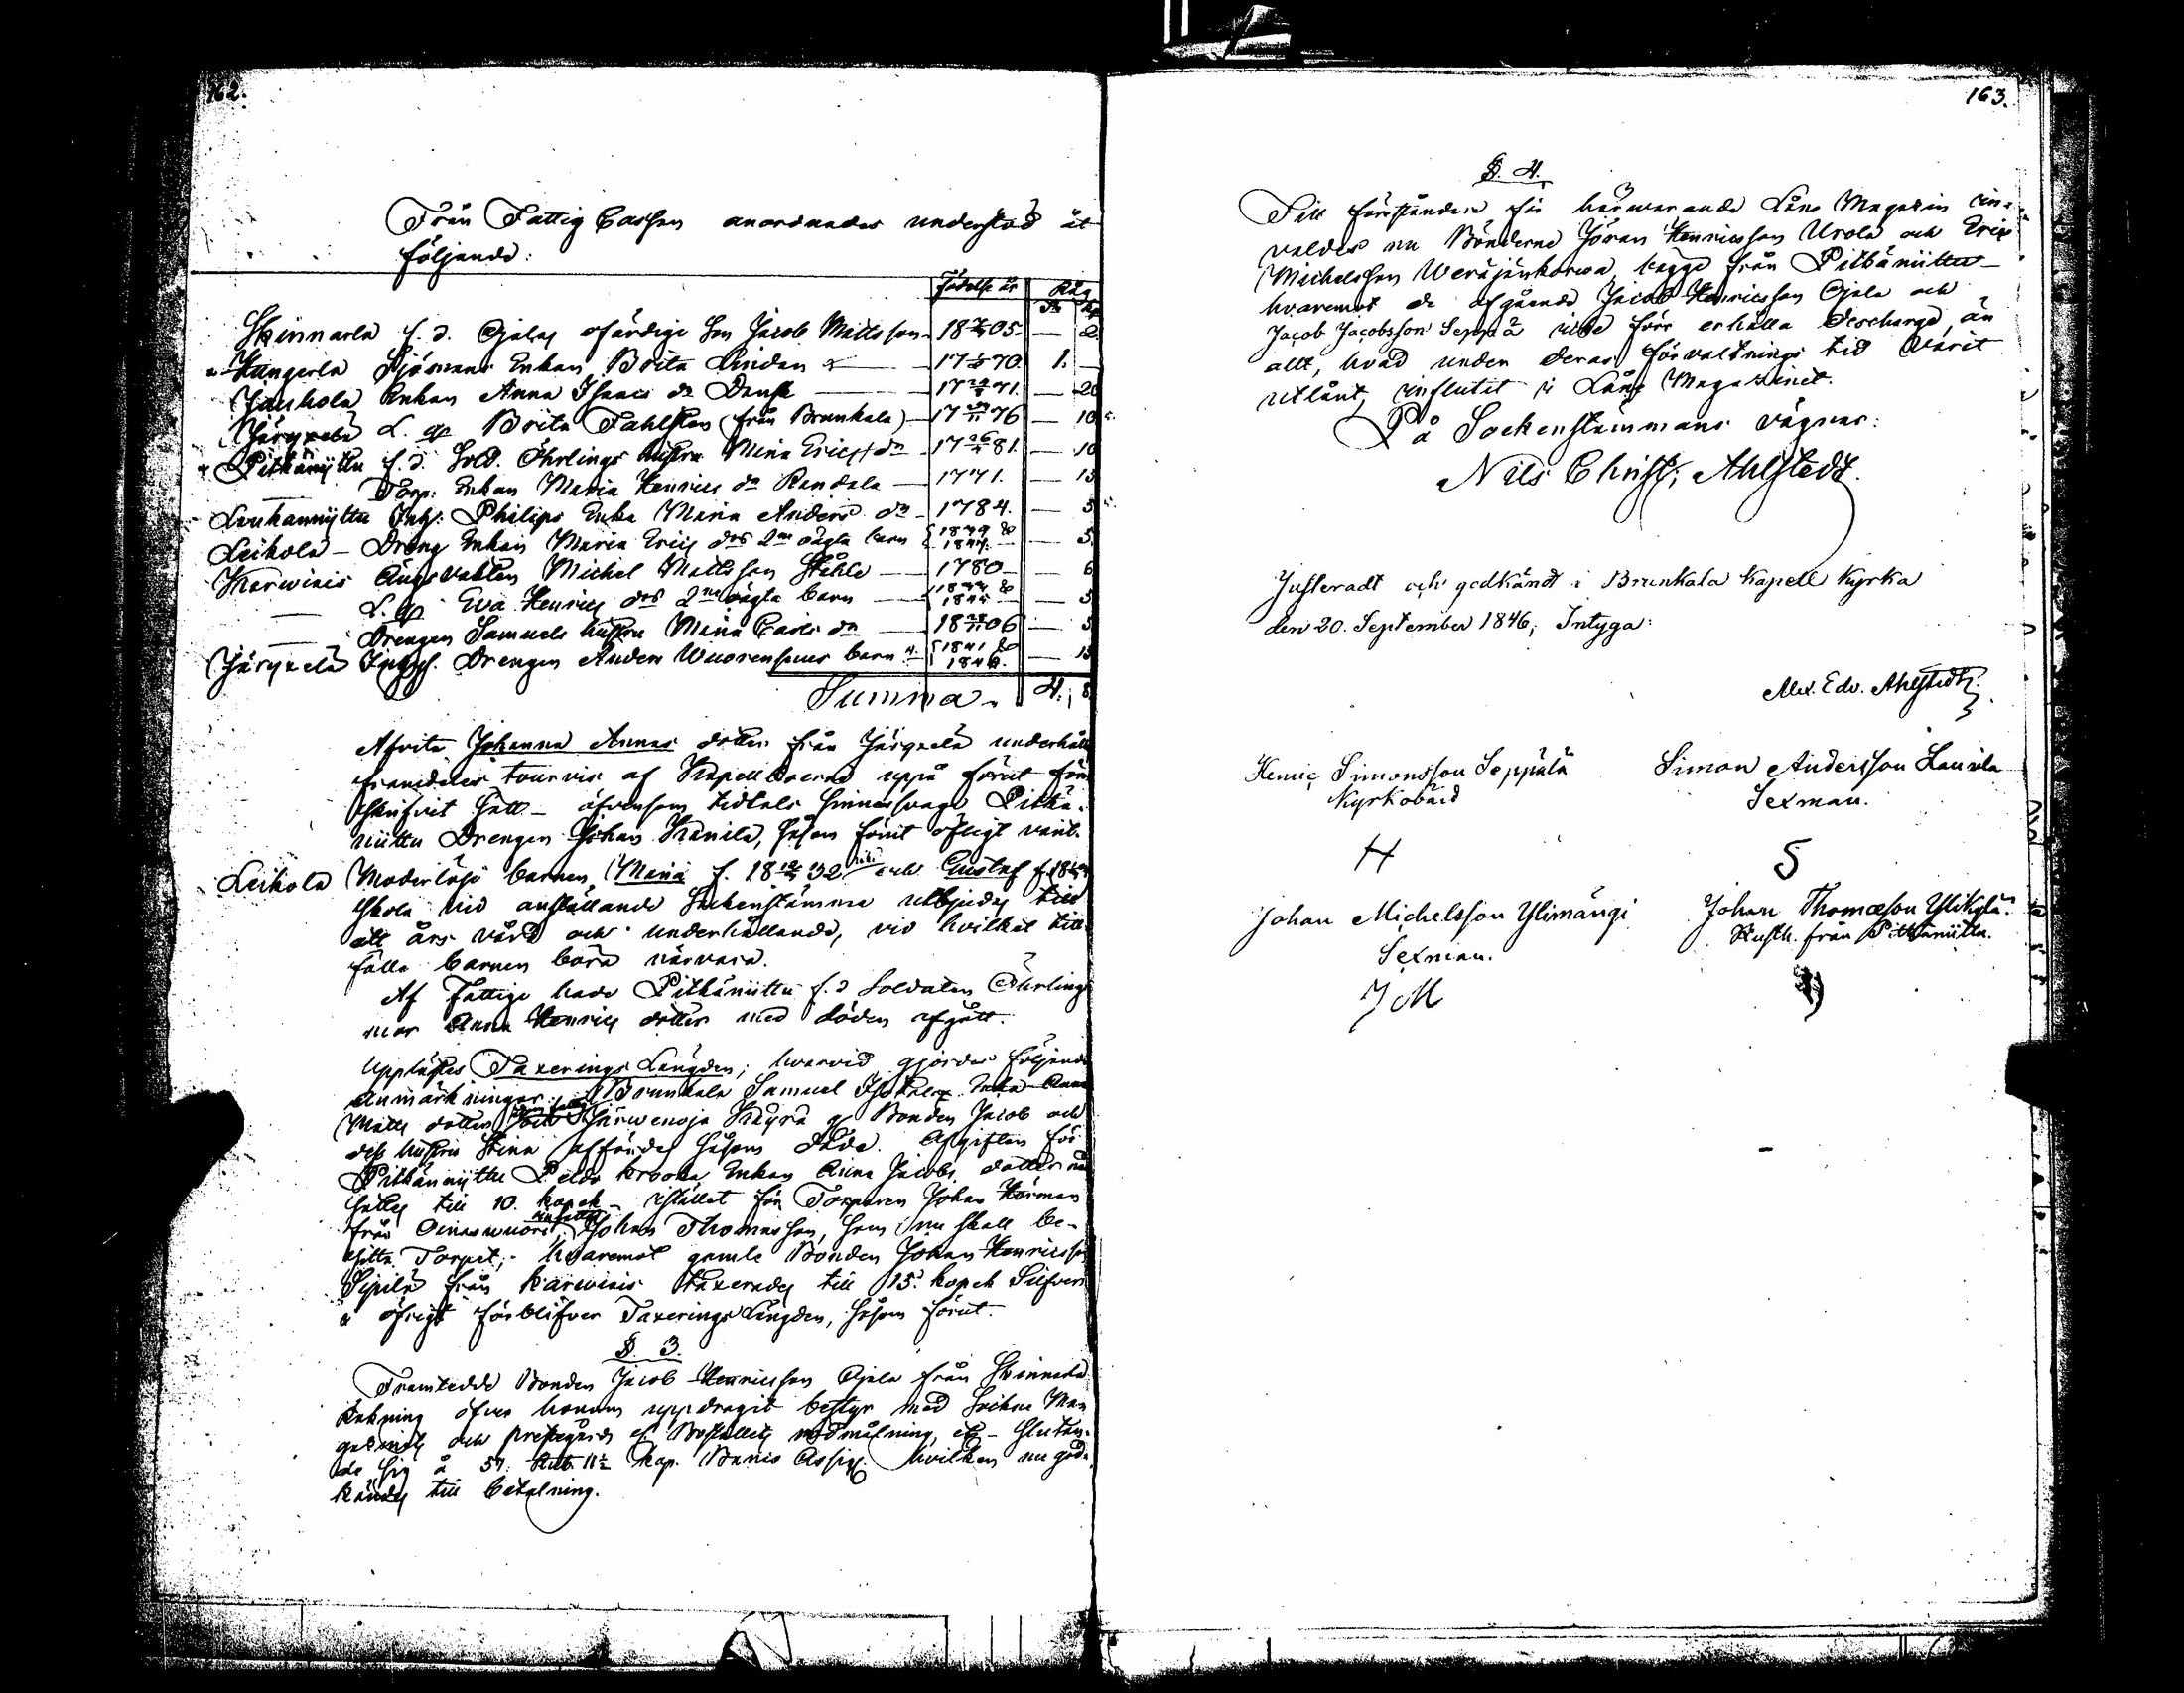 162.
Från Fattig Cassan anordnades understöd åt
följande:
Födelse år Råg
Skinnarla f. d. Ojalas ofärdige Son Jacob Mattsson 18 05 — 2
Kungerla Sjömans Enkan Brita Lindan 17 70 1. —
Jauhola Enkan Anna Isaacs dr Dansk 17 71. — 20
Järvxelä L. qp Brita Fahlsten (från Brunkala) 17 76 — 10
Pitkäniittu f. d. Sold. Öhrlings hustru Mina Erics dr 17 26 81. — 10
— Torp. Enkan Maria Henrics dr Randala — 1771. — 15
Louhanniittu Inh: Philips Enka Maria Anders dr 1784. — 5
Leikola — Dräng Enkan Maria Erics drs 2ne oägta barn 1839 & 1844. — 5
Karwiais Ängsvakten Michel Mattsson Ståhle — 1780 — 6
— L. qp Eva Henrics drs 2ne oägta barn — — 5
— Drengen Samuels hustru Maria Carls dr — 18 06 — 5
Järvxelä Inhys. Drengen Anders Wuorenpäas barn 4. 1841 & 184 — 15
Summa. 4. 8
Afvita Johanna Annas dotter från Järvxelä underhålles
framdeles tourvis af Kapellboerne uppå förut före
skrifvit sätt — äfvensom tidtals sinnessvage Pitkä-
niittu Drengen Johan Kanila, såsom förut öfligt varit.
Leikola Moderlösa barnen Maria f. 18 32 och Gustaf f. 18
skola vid anställande Sockenstämma utbjudas till
ett års vård och underhållande, vid hvilket till-
fälle barnen böra närvara.
Af Fattige hade Pitkäniittu f. d. Soldaten Öhrlings
mor Anna Henrics dotter med döden afgått.
Upplästes Taxerings Längden; hvarvid gjordes följande
anmärkningar: Brunkala Samuel Enka Anna
Matts dotter Järwenoja Käyrä qp Bonden Jacob och
dess hustru Stina afföres såsom döde. Afgiften för
Pitkäniittu Peldo krooka Enkan Anna Jacobs dotter ned
sattes till 10. kopek — istället för Torparen Johan Körman
från Oinaswuori, Johan Thomasson, som nu skall be-
sitta Torpet; hvaremot gamle Bonden Johan Henricsson
Sipilä från Karwiais taxerades till 15. kopek Silfver
i öfrigt förblifver Taxerings Längden, såsom förut.
§. 3.
Framtedde Bonden Jacob Henricsson Ojala från Skinnarla
Räkning öfver honom uppdragit bestyr med Sockne Ma-
gazinets och prestegårds Boställets rödmålning, etc — slutan-
de sig å 57. Rub. 11½ kop. Banco Assigr. hvilken nu god-
kändes till betalning.
163.
§. 4.
Till föreståndare för härwarande Låne Magazin
valdes nu Bönderne Jöran Henricsson Urola och Eric
Michelsson Weräjänkorwa, bägge från Pitkäniittu —
hvaremot de afgående Jacob Henricsson Ojala och
Jacob Jacobsson Seppä icke förr erhålla decharge, än
allt, hvad under deras förvaltnings tid varit
utlånt, influtit i Låne Magazinet.
På Sockenstämmans vägnar:
Nils Christ. Ahlstedt.
Justeradt och godkändt i Brunkala Kapell Kyrka
den 20. September 1846; Intyga:
Alex. Edv. Ahlstedt.
Henric Simonsson Seppälä Simon Andersson Laurila
Kyrkovärd Sexman.
H S
Johan Michelsson Ylimängi Johan Thomasson Ylikylä
Sexman. Rusth. från Pitkäniittu.
J M